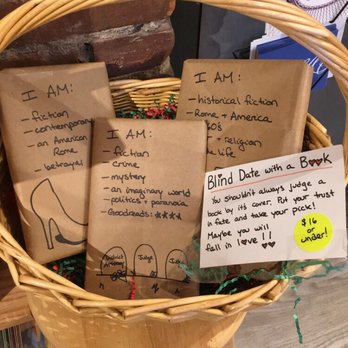 I AM:
- fiction
- contemporary
- an American
Rome
- betrayal
I AM:
- fiction
- crime
- mystery
- an imaginary world
- politics + paranoia
- Goodreads: ★★★★
District
Attorney
Judge
Judge
I AM:
- historical fiction
- Rome + America
60s
+ religion
life
Blind Date with a Book
You shouldn't always judge a
book by its cover. Put your trust
in fate and take your pick!
Maybe you will
fall in love!!
$16
or
under!